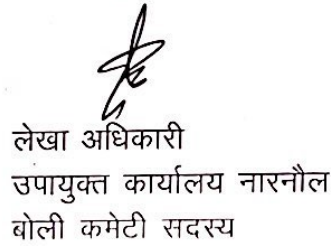 लेखा अधिकारी
उपायुक्त कार्यालय नारनौल
बोली कमेटी सदस्य